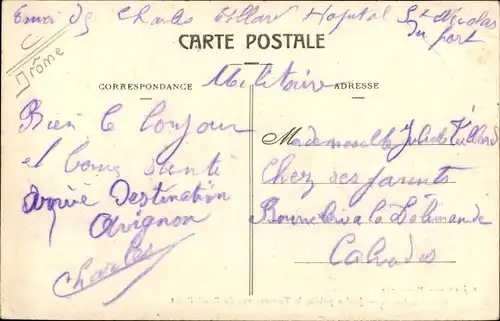 Envoi de Charles Tillard Hopital St Nicolas
du fort
Militaire
Drôme
CARTE POSTALE
CORRESPONDANCE
ADRESSE
Bien le bonjour
et bonne santé
Arrivé Destination
Avignon
Charles
Mademoiselle Tillard
Chez ses parents
a la
Calvados